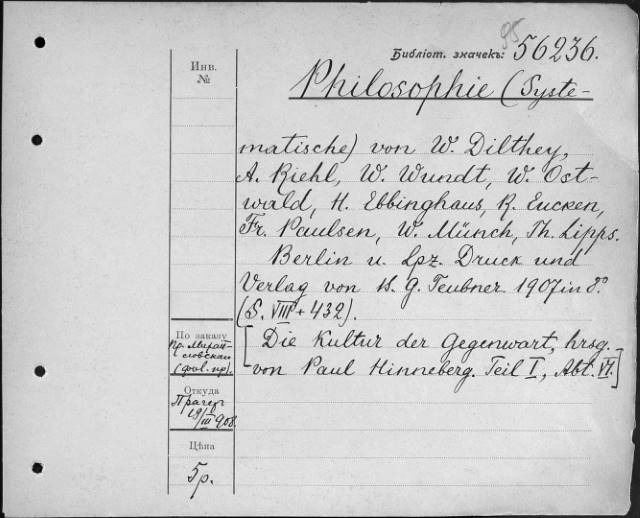 95
Библіот. значекъ: 56236.
Инв.
№
Philosophie (Syste-
matische) von W. Dilthey,
A. Riehl, W. Wundt, W. Ost-
wald, H. Ebbinghaus, R. Eucken,
Fr. Paulsen, W. Münch, Th. Lipps.
Berlin u. Lpz. Druck und
Verlag von B. G. Teubner 1907 in 8°
(S. VIII + 432).
[Die Kultur der Gegenwart, hrsg.
von Paul Hinneberg. Teil I, Abt. VI.]
По заказу
Откуда
Прагеръ
19/III 908.
Цѣна
5р.